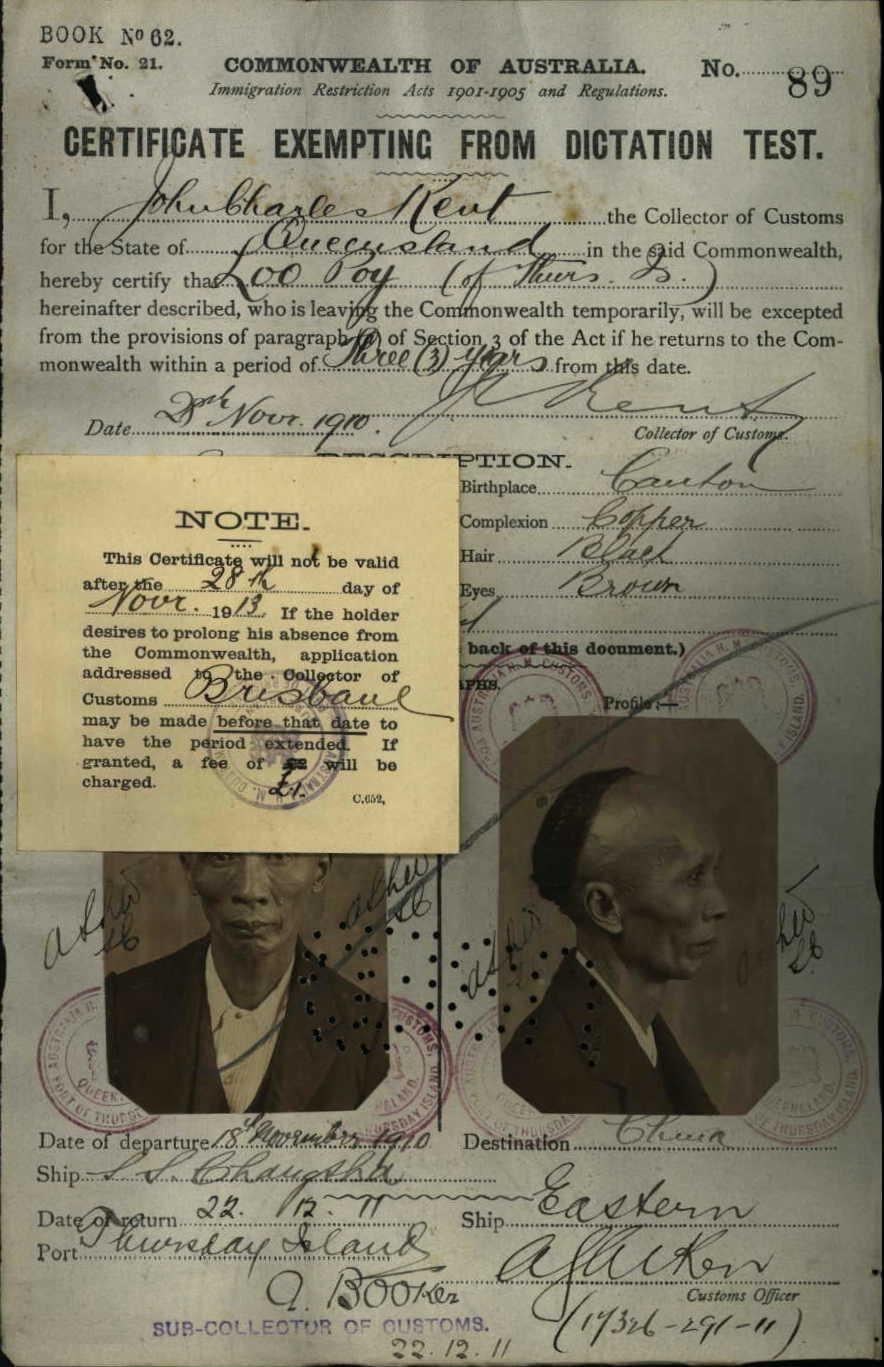 BOOK No 62.
Form No. 21.
COMMONWEALTH OF AUSTRALIA.
No. 89
Immigration Restriction Acts 1901-1905 and Regulations.
CERTIFICATE EXEMPTING FROM DICTATION TEST.
I, John Charles Kent the Collector of Customs
for the State of Queensland in the said Commonwealth,
hereby certify that Loo Poy (of Thurs. Is.)
hereinafter described, who is leaving the Commonwealth temporarily, will be excepted
from the provisions of paragraph (a) of Section 3 of the Act if he returns to the Com-
monwealth within a period of Three (3) years from this date.
Date Novr. 1910.
J C Kent
Collector of Customs.
PTION.
Birthplace Canton
Complexion Copper
Hair Black
Eyes Brown
back of this document.)
PHS.
Profile:—
NOTE.
This Certificate will not be valid
after the 28th day of
Novr. 1913. If the holder
desires to prolong his absence from
the Commonwealth, application
addressed to the Collector of
Customs Brisbane
may be made before that date to
have the period extended. If
granted, a fee of £2 will be
charged. £1.
C.652,
Date of departure 18th November 1910
Destination China
Ship S.S. Changsha
Date of return 22. 12. 11
Ship Eastern
Port Thursday Island
A. Booker
Customs Officer
SUB-COLLECTOR OF CUSTOMS.
22.12.11
(17326-291-11)